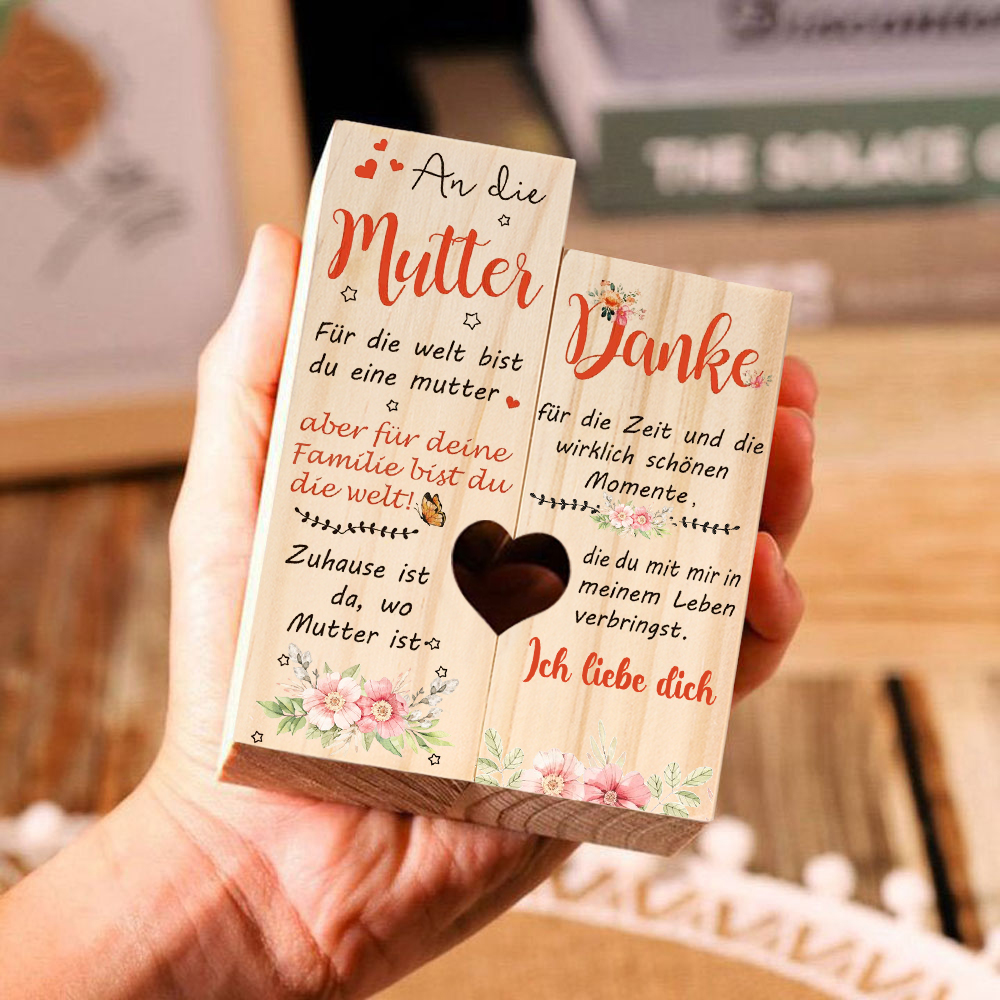 An die
Mutter
Für die welt bist
du eine mutter
aber für deine
Familie bist du
die welt!
Zuhause ist
da, wo
Mutter ist
Danke
für die Zeit und die
wirklich schönen
Momente,
die du mit mir in
meinem Leben
verbringst.
Ich liebe dich
THE SOLACE